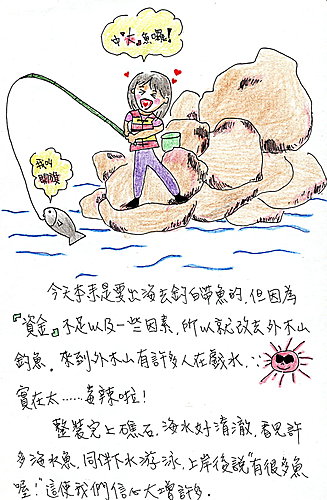 中"大"魚喔!
我叫
今天本來是要出海去釣白帶魚的,但因為
『資金』不足以及一些因素,所以就改去外木山
釣魚。來到外木山有許多人在戲水,..
實在太......毒辣啦!
整裝完上礁石,海水好清澈,看見許
多海水魚,同伴下水游泳,上岸後說"有很多魚
喔!"這使我們信心大增許多.